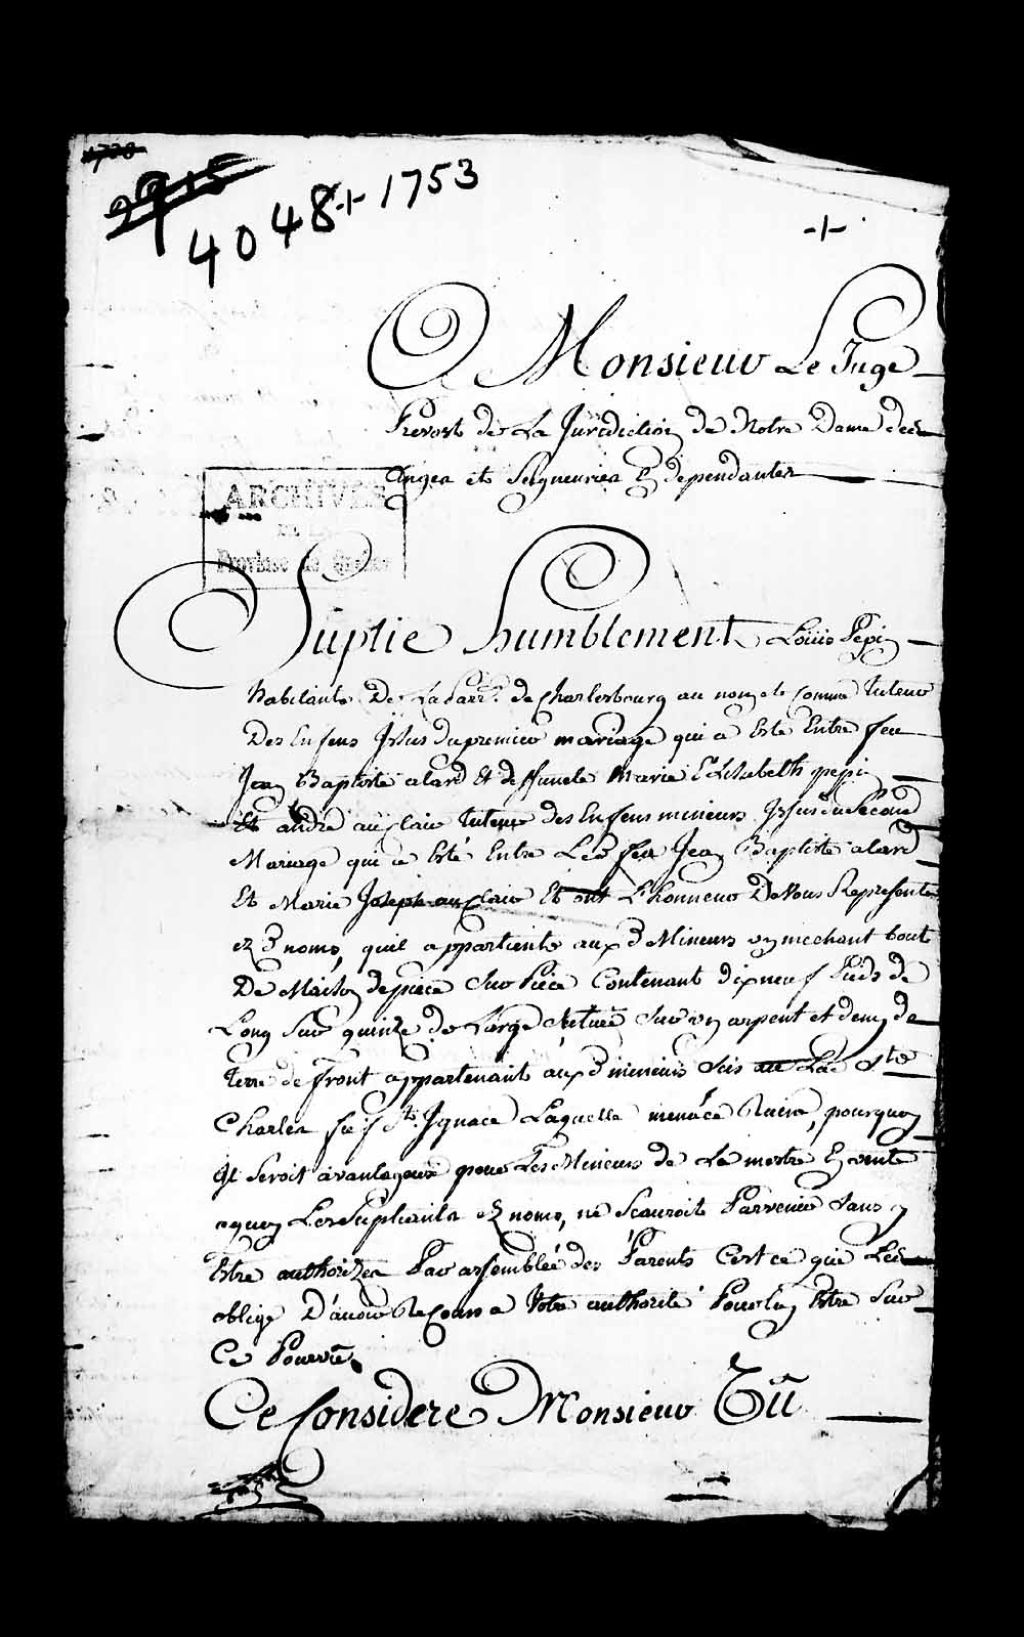 1720
2915
4048 + 1753
+
A Monsieur Le Juge
Prevost de La Juridiction de Notre Dame des
Anges et Seigneuries En dependantes
ARCHIVES
DE LA
Province de Québec
Suplie humblement Loüis Pepin
habitants De La parr.e de Charlesbourg au nom et comme Tuteur
Des Enfens Jssus du premier mariage qui a Esté Entre feu
Jean Baptiste alard Et deffuncte Marie Elisabeth pepin
Et andré auclair tuteur des Enfens mineurs Jssus du Second
Mariage qui a Esté Entre Led feu Jean Baptiste alard
Et Marie Joseph auclair Et ont L'honneur De Vous Representer
ez d noms, quil appartients aux d Mineurs un mechant bout
De Maison de piece Sur Piece Contenant dix neuf Pieds de
Long Sur quinze de Large, Scitüé Sur un arpent et demy de
Terre de front appartenant aux d mineurs Scis au Lac St
Charles fief St Jgnace Laquelle menace Ruine, pourquoy
Jl Seroit avantageux pour Les Mineurs de La mettre En vente
aquoy Les Supliants ez noms, ne Scauroit Parvenir Sans y
Estre authorizés Par assemblée des Parents Cest ce que Les
oblige D'avoir Recours a Votre authorité Pour Leur Estre Sur
Ce Pourvû.
Ce Consideré Monsieur